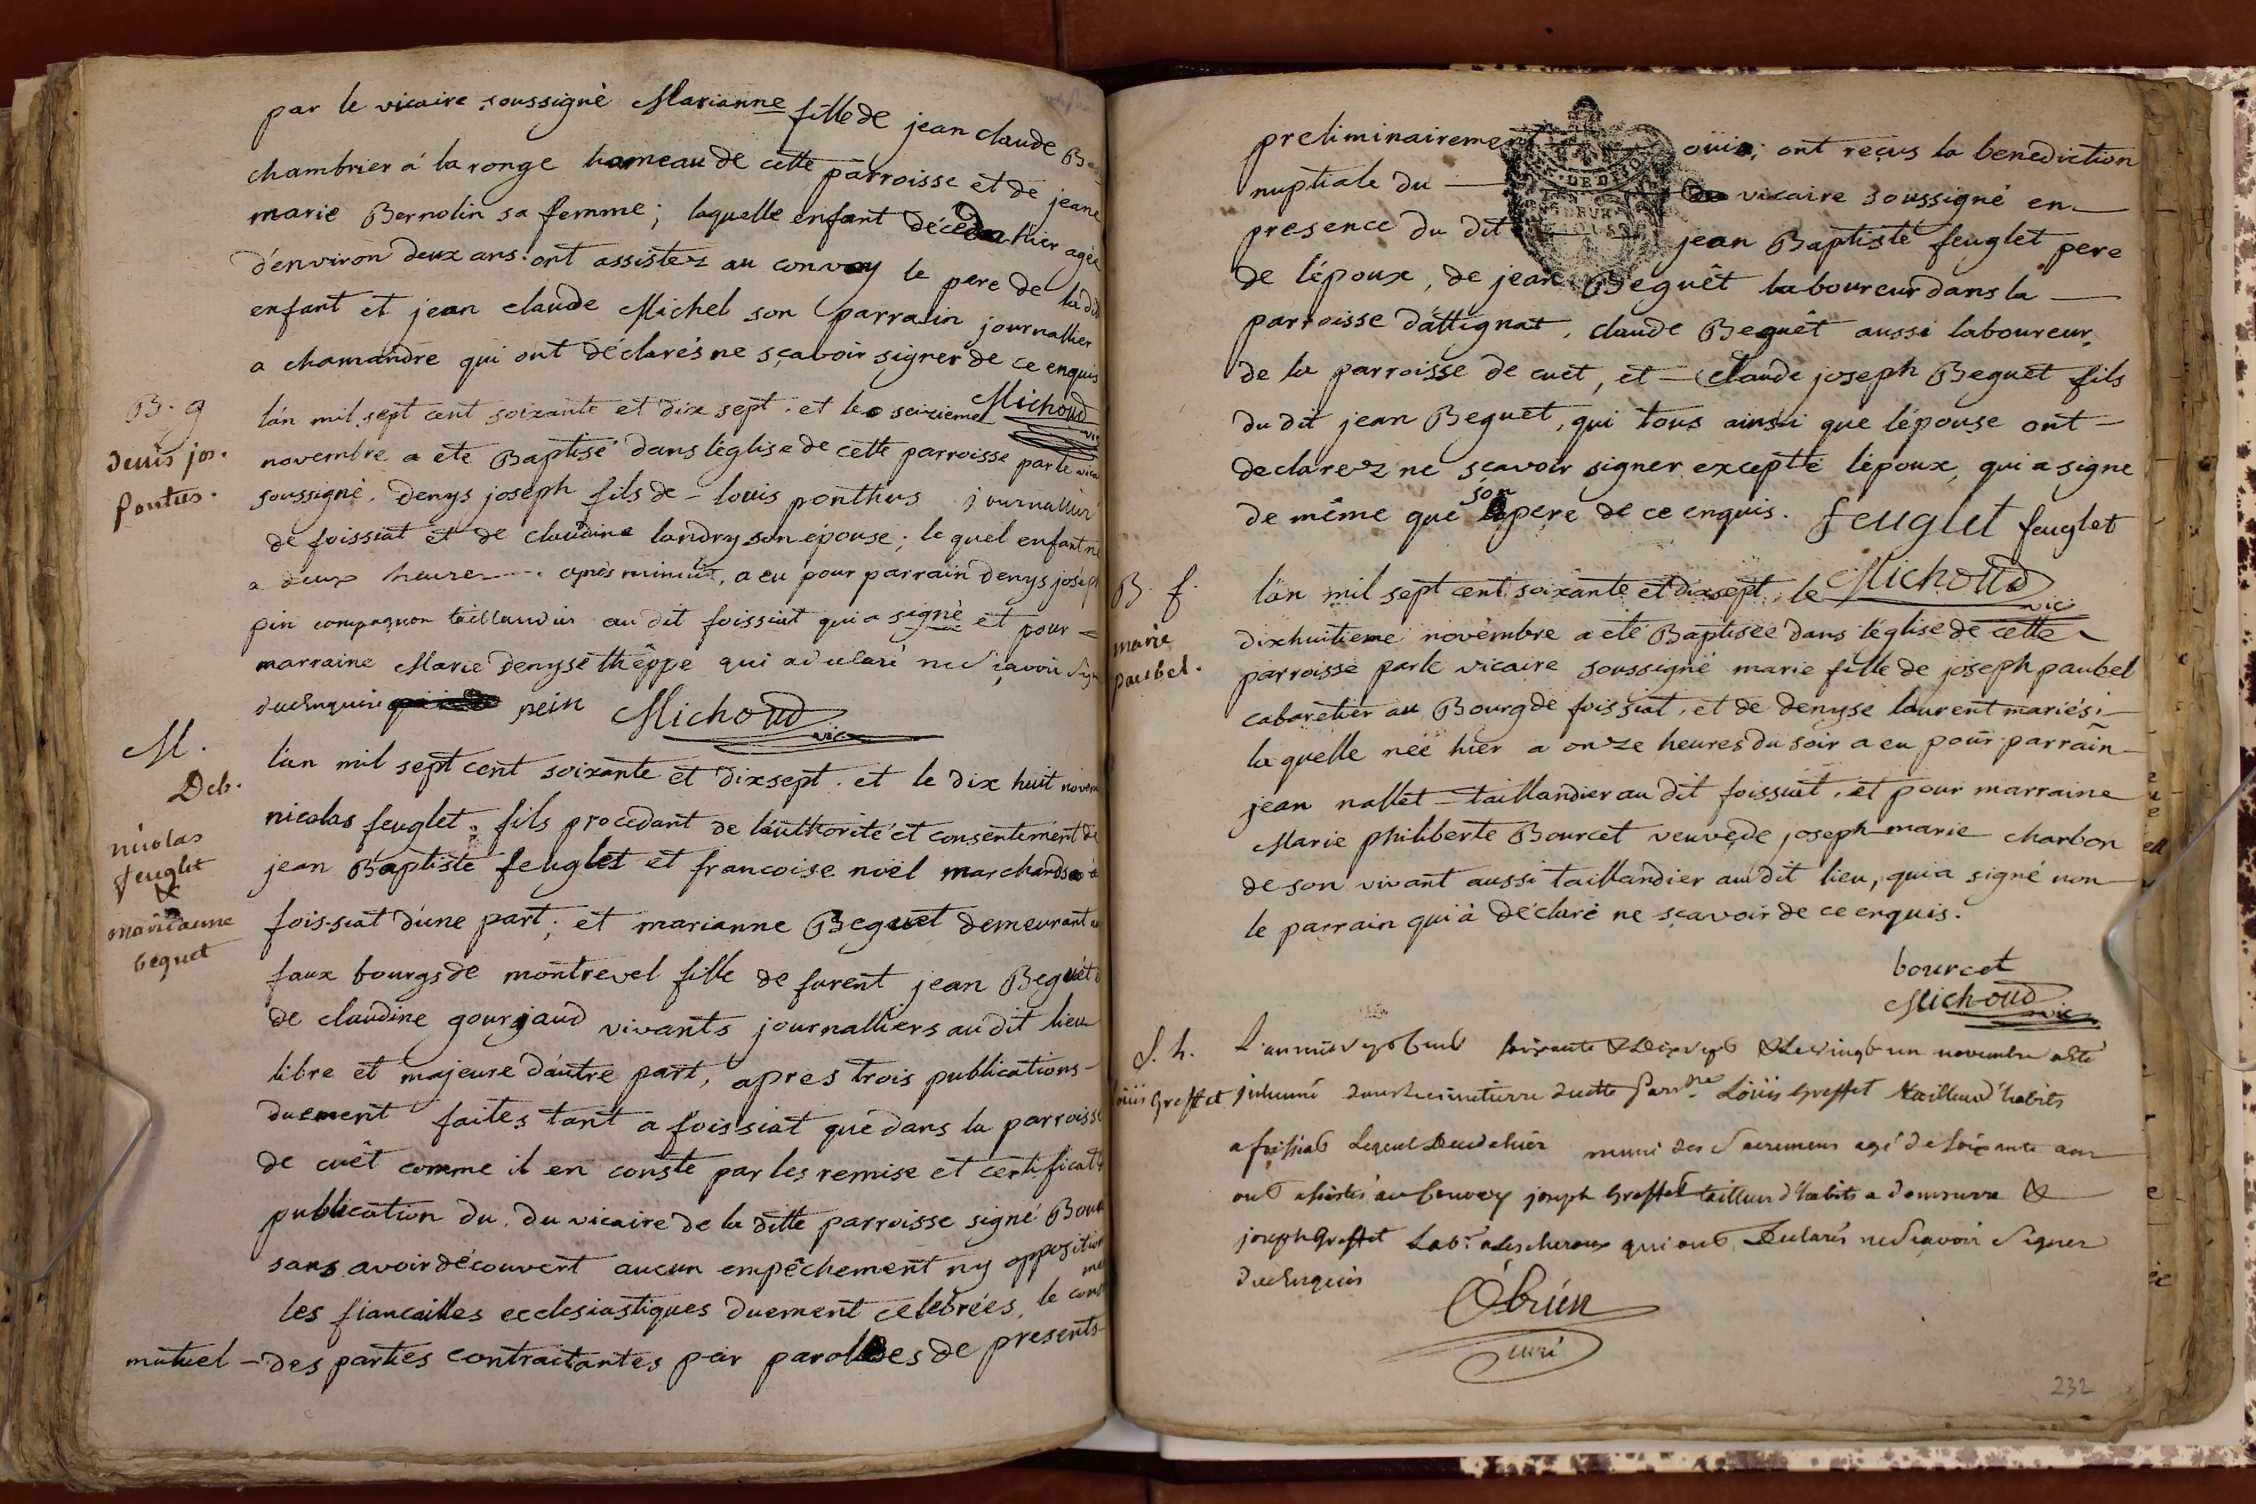 par le vicaire soussigné Marianne fille de jean claude
chambrier à la ronge hameau de cette parroisse et de jeane
marie Bernolin sa femme; laquelle enfant décédée hier agée
d'environ deux ans. ont assistez au convoy le pere de la dit
enfant et jean claude Michel son parrain journallier
a chamandre qui ont déclarés ne sçavoir signer de ce enquis
Michoud
vic
B. g
denis jos.
Pontus.
l'án mil sept cent soixante et dix sept. et le seizieme
novembre a eté Baptisé dans l'église de cette parroisse par le vica
soussigné. Denys joseph fils de - louis ponthus journallier
de foissiat et de claudine landry son épouse; le quel enfant né
a deux heures apres minuit, a eu pour parrain denys joseph
pin compagnon taillandier au dit foissiat qui a signé et pour =
marraine Marie denyse théppe qui a declaré ne sçavoir sign
duenquise pein Michoud
vic
M.
Deb.
nicolas
feuglet
&
marianne
beguet
l'án mil sept cent soixante et dixsept. et le dix huit novem
nicolas feuglet fils procédant de l'authorité et consentement de
jean Baptiste feuglet et francoise noël marchands à
foissiat d'une part; et marianne Beguet demeurant au
faux bourgs de montrevel fille de furent jean Beguét
de claudine gourjaud vivants journalliers au dit lieu
libre et majeure d'áutre part, apres trois publications -
duement faites tant a foissiat que dans la parroisse
de cuêt comme il en conste par les remise et certificat
publication du. du vicaire de la ditte parroisse signé
sans avoir découvert aucun empêchement ny opposition
les fiancailles ecclesiastiques duement célébrées, le cons
mutuel - des parties contractantes par parolles de presents
preliminairement ouïe; ont reçus la benediction
nuptiale du — vicaire soussigné en —
presence du dit jean Baptiste feuglet pere
de l'époux, de jean Beguêt laboureur dans la —
parroisse d'áttignat, claude Beguêt aussi laboureur
de la parroisse de cuet, et - Claude joseph Beguet fils
du dit jean Beguet, qui tous ainsi que l'épouse ont -
declarez ne sçavoir signer excepté l'époux, qui a signe
de même que son pere de ce enquis. feuglet feuglet
Michoud
vic
B. f.
marie
paubel.
l'án mil sept cent soixante et dixsept, le
dixhuitieme novembre a eté Baptisée dans l'église de cette
parroisse par le vicaire soussigné marie fille de joseph paubel
cabaretier au Bourg de foissiat, et de denyse laurent mariés;
laquelle née hier a onze heures du soir a eu pour parrain -
jean nallet - taillandier au dit foissiat, et pour marraine
Marie philiberte Bourcet veuve de joseph-marie charbon
de son vivant aussi taillandier au dit lieu, qui a signé non
le parrain qui à déclaré ne sçavoir de ce enquis.
bourcet
Michoud
vic
S. h.
Loüis Greffet
L'an mil sept Cent soixante & Dix sept & Le vingt un novembre a Esté
inhumé dans le cimetierre de cette Parrsse Loüis Greffet tailleur d'habits
a foissiat Lequel Decedé hier muni des Sacremens agé de soixante ans
ont assistés au Convoy joseph Greffet tailleur d'habits a &
joseph Greffet Labr. a Lescheroux qui ont Declarés ne sçavoir Signer
de ce Enquis
Óbrien
curé
232